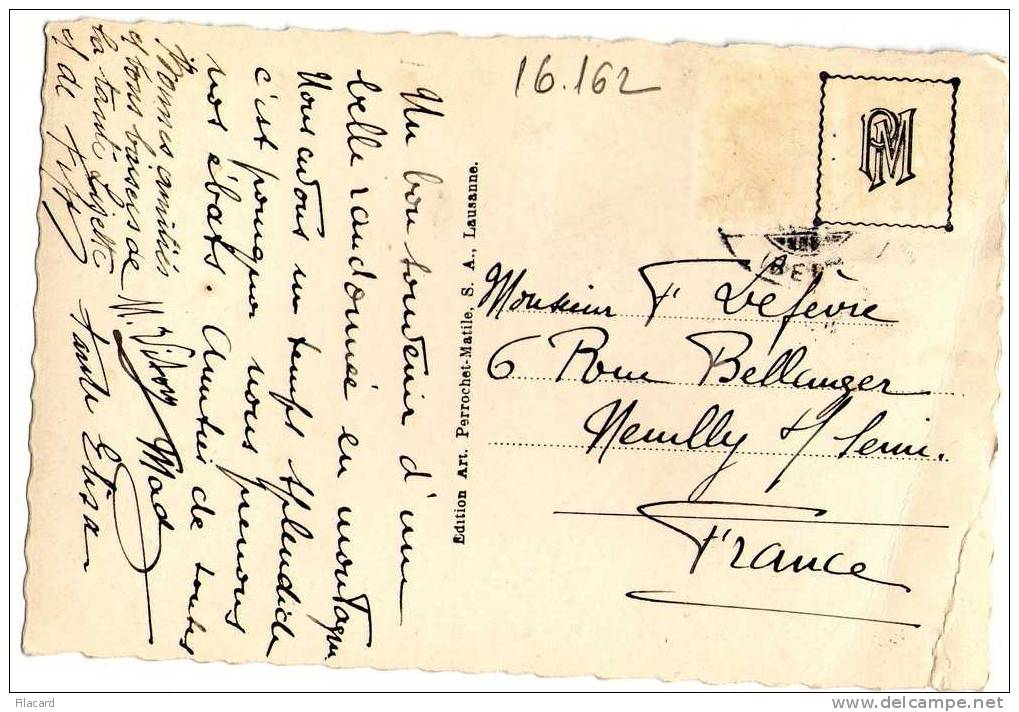 16.162
PM
BE
Un bon souvenir d'une
belle randonnée en montagne.
Nous avons un temps splendide
c'est pourquoi nous prenons
nos ébats. Amitiés de toutes
Mad
Bonnes amitiés
et bons baisers de
la tante Lysette
et de
Tante Elisa
Edition Art. Perrochet-Matile, S. A., Lausanne.
Monsieur F Lefèvre
6 Rue Bellanger
Neuilly s/ Seine.
France
Filacard
delcampe.net